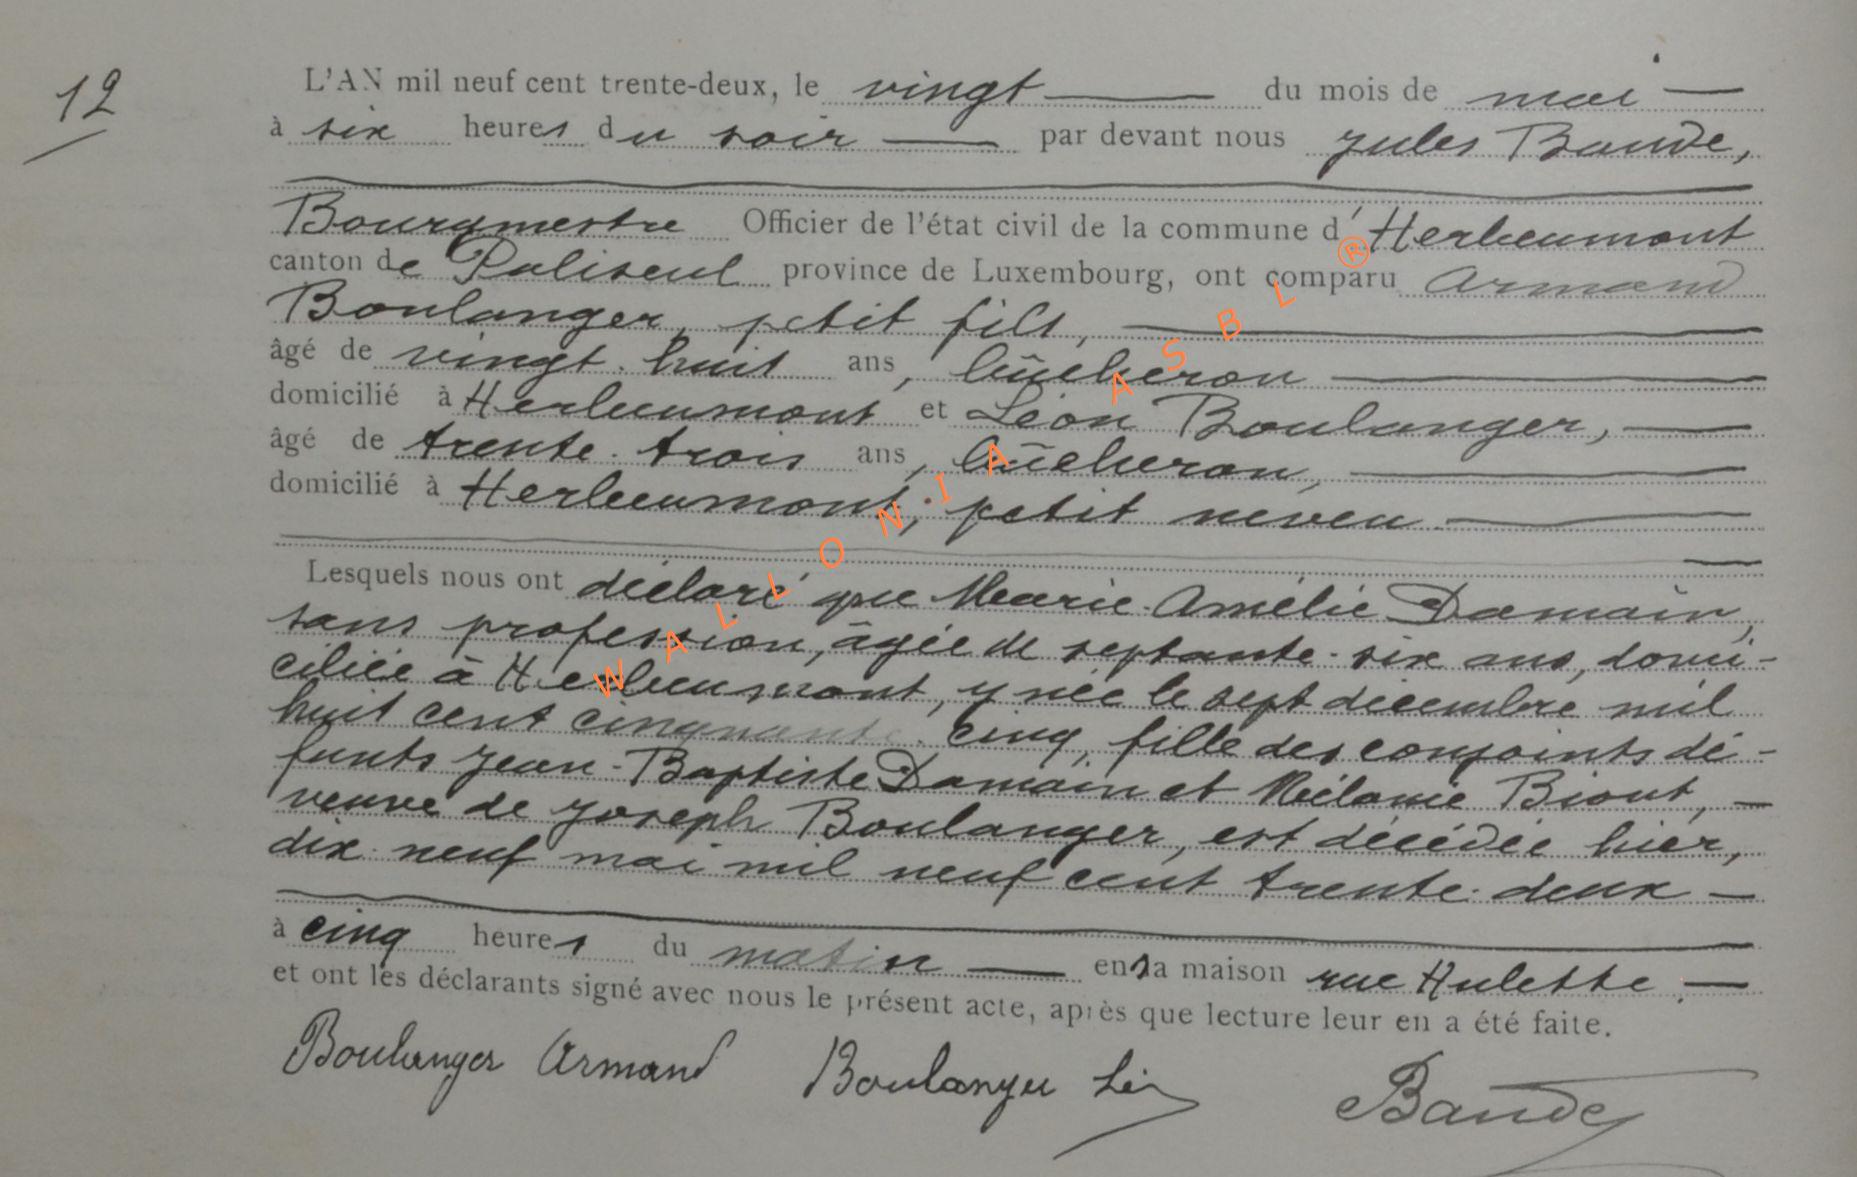 12
L'AN mil neuf cent trente-deux, le vingt du mois de mai
à six heures du soir par devant nous Jules Baude,
Bourgmestre Officier de l'état civil de la commune d'Herbeumont
canton de Paliseul province de Luxembourg, ont comparu Armand
Boulanger, petit fils,
âgé de vingt-huit ans, bûcheron
domicilié à Herbeumont et Léon Boulanger,
âgé de trente-trois ans, bûcheron,
domicilié à Herbeumont, petit neveu
Lesquels nous ont déclaré que Marie-Amélie Damain,
sans profession, âgée de septante-six ans, domi-
ciliée à Herbeumont, y née le sept décembre mil
huit cent cinquante-cinq, fille des conjoints dé-
funts Jean-Baptiste Damain et Mélanie Biout,
veuve de Joseph Boulanger, est décédée hier,
dix-neuf mai mil neuf cent trente-deux
à cinq heures du matin en sa maison rue Hulette
et ont les déclarants signé avec nous le présent acte, après que lecture leur en a été faite.
Boulanger Armand Boulanger Léon Baude
WALLONIA ASBL ®